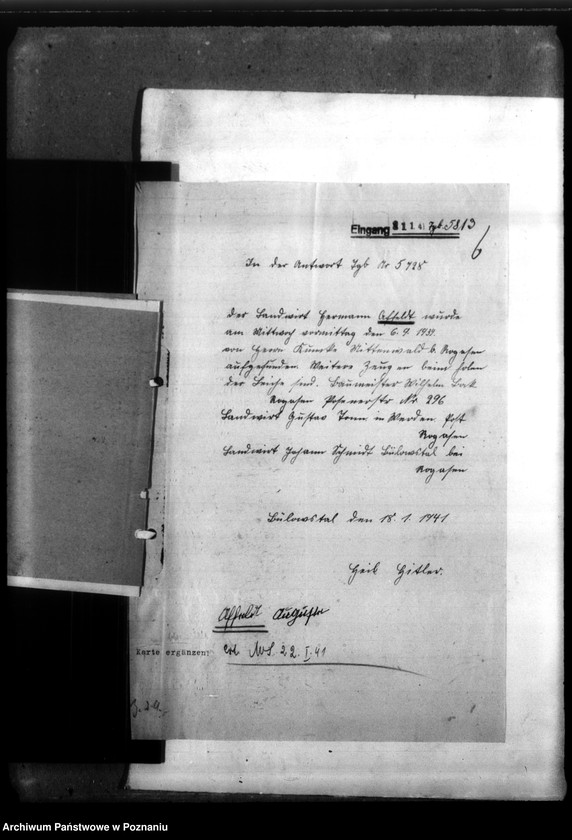 Eingang 21 1 41 Tgb. 5813
6
In der Antwort Tgb Nr 5728
Der Landwirt Hermann Affeldt wurde
am Mittwoch vormittag den 6. 9. 1939.
von Herrn Kunske Rittenwald b. Rogasen
aufgefunden Weitere Zeugen beim holen
der Leiche sind. Baumeister Wilhelm Bock
Rogasen Posenerstr No 296
Landwirt Gustav Tonn in Werden Post
Rogasen
Landwirt Johann Schmidt Bülowstal bei
Rogasen
Bülowstal den 18. 1. 1941
Heil Hitler.
Affeldt Auguste
Karte ergänzen: 22. I. 41
Archiwum Państwowe w Poznaniu